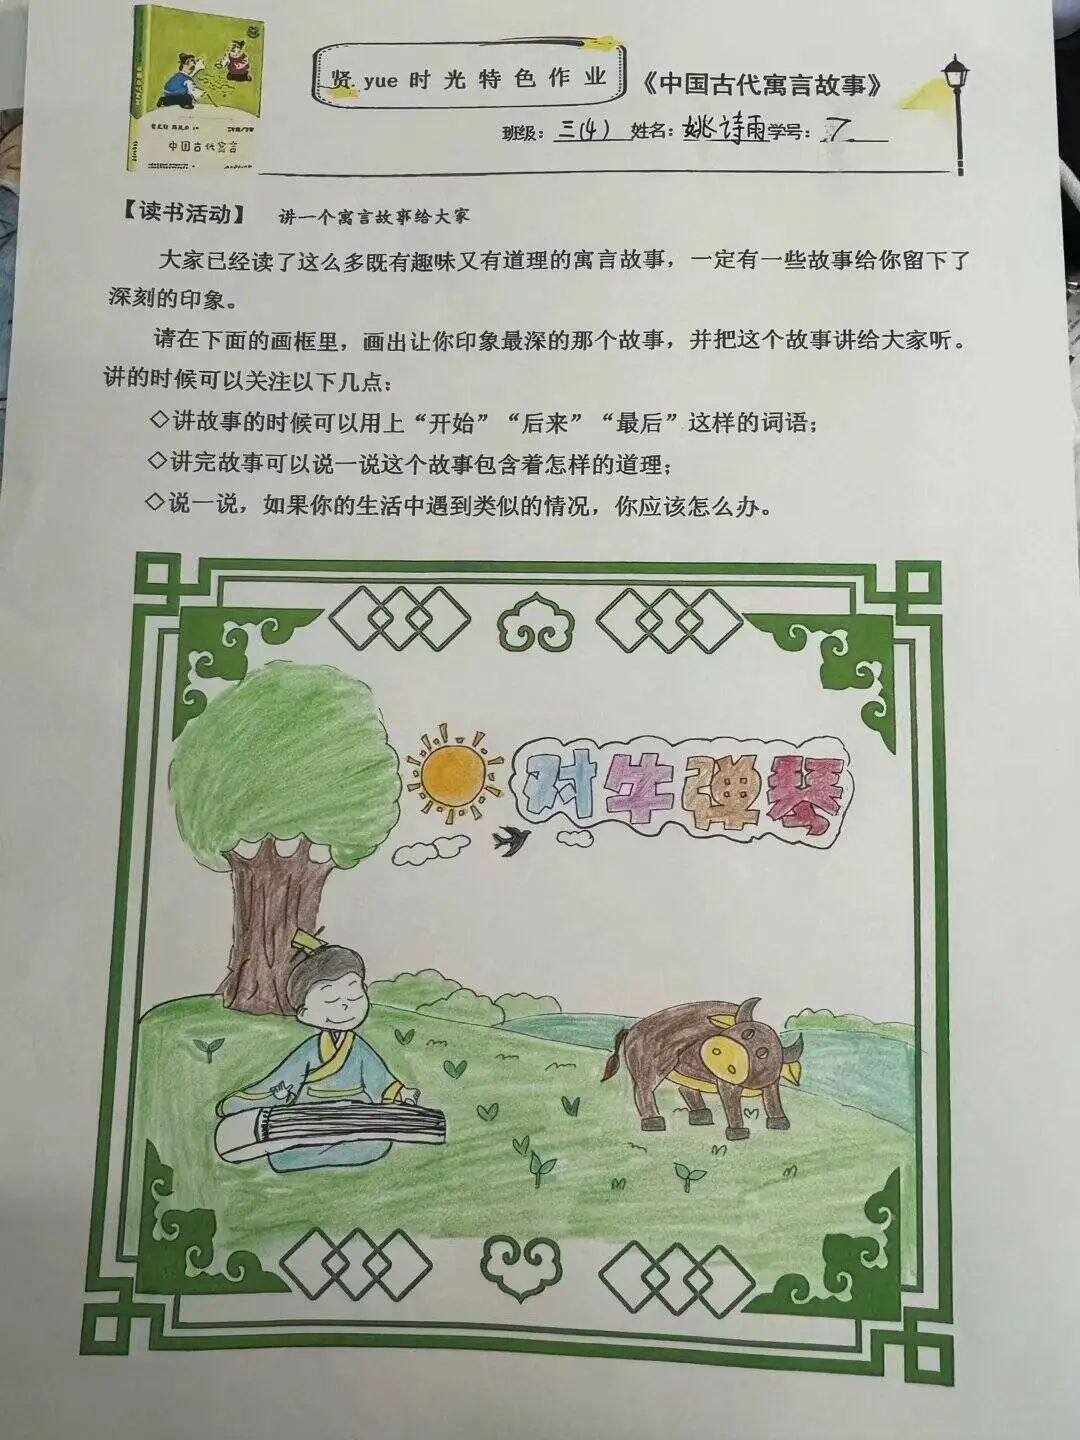 贤.yue时光特色作业
《中国古代寓言故事》
班级：三(4) 姓名：姚诗雨 学号：7
中国古代寓言
【读书活动】 讲一个寓言故事给大家
大家已经读了这么多既有趣味又有道理的寓言故事，一定有一些故事给你留下了
深刻的印象。
请在下面的画框里，画出让你印象最深的那个故事，并把这个故事讲给大家听。
讲的时候可以关注以下几点：
◇讲故事的时候可以用上“开始”“后来”“最后”这样的词语；
◇讲完故事可以说一说这个故事包含着怎样的道理；
◇说一说，如果你的生活中遇到类似的情况，你应该怎么办。
对牛弹琴